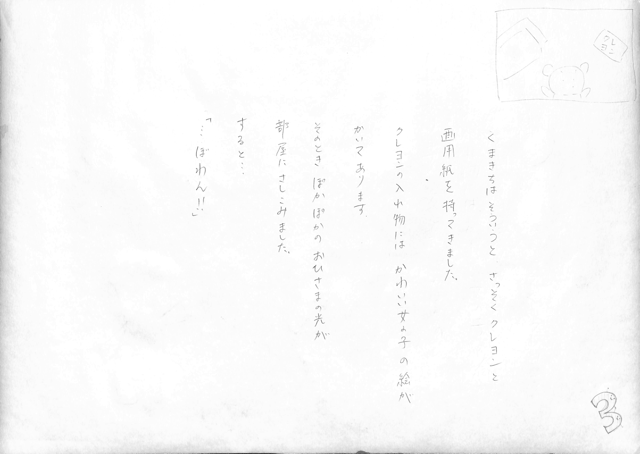 くまきちは そういうと さっそく クレヨンと
画用紙を 持ってきました。
クレヨンの入れ物には かわいい女の子の絵が
かいてあります
そのとき ぽかぽかの おひさまの光が
部屋に さしこみました。
すると…
「…ぼわん!!」
クレヨン
3